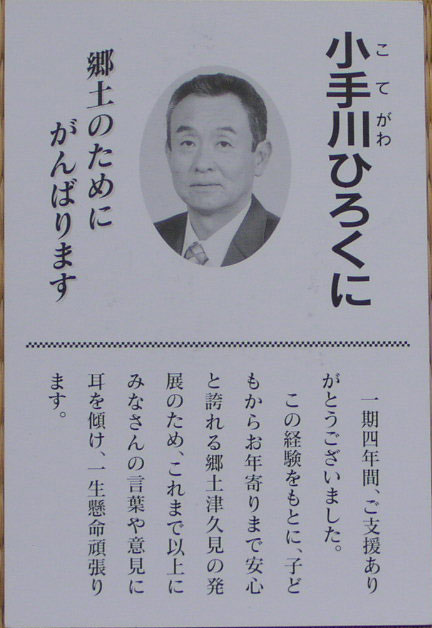 小手川ひろくに
こてがわ
郷土のために
がんばります
一期四年間、ご支援あり
がとうございました。
この経験をもとに、子ど
もからお年寄りまで安心
と誇れる郷土津久見の発
展のため、これまで以上に
みなさんの言葉や意見に
耳を傾け、一生懸命頑張り
ます。